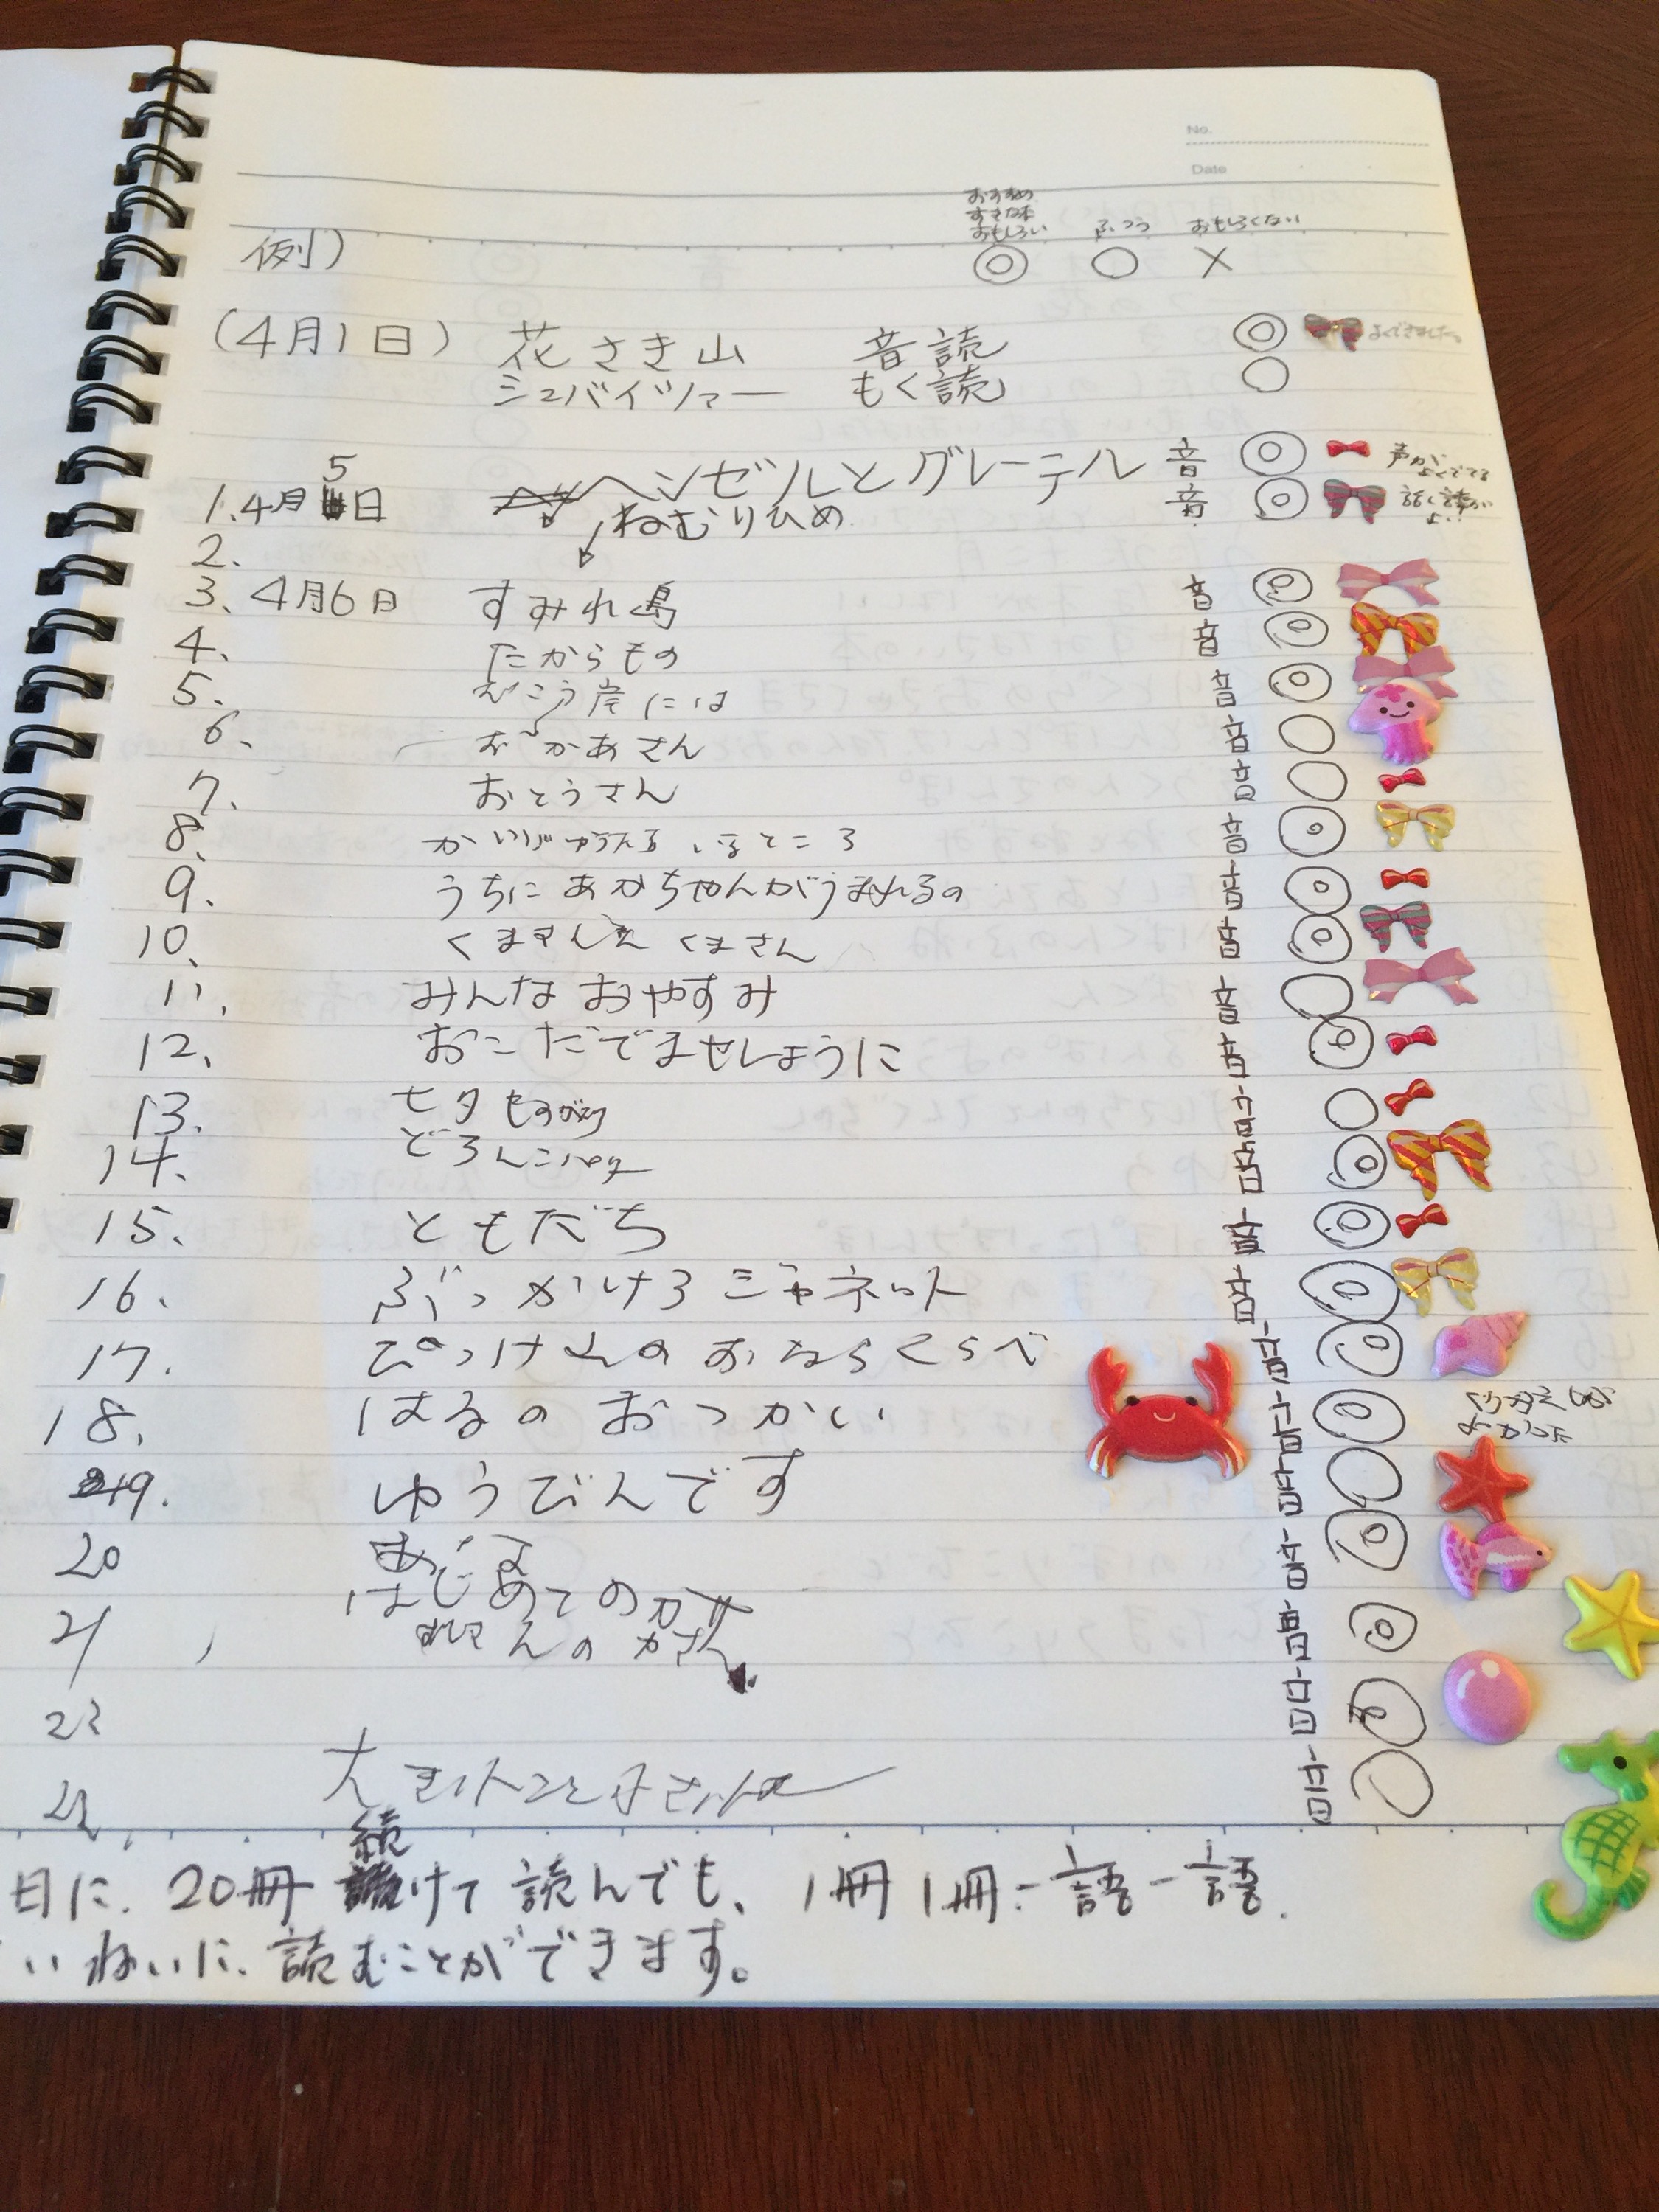 No.
Date
おすすめ
すきな本
おもしろい ふつう おもしろくない
例) ◎ ○ ×
(4月1日) 花さき山 音読 ◎ よくできました
シュバイツァー もく読 ○
ヘンゼルとグレーテル 音 ◎ 声が よくでてる
1. 4月5日 ねむりひめ 音 ◎
2.
3. 4月6日 すみれ島 音 ◎
4. たからもの 音 ◎
5. むこう岸には 音 ◎
6. おかあさん 音 ○
7. おとうさん 音 ○
8. かいじゅうたちのいるところ 音 ◎
9. うちにあかちゃんがうまれるの 音 ◎
10. くまさん くまさん 音 ◎
11. みんなおやすみ 音 ○
12. おこだでませんように 音 ◎
13. 七夕ものがたり 音 ○
14. どろんこハリー 音 ◎
15. ともだち 音 ◎
16. ぶっかけろジャネット 音 ◎
17. ぴっけやまのおならくらべ 音 ◎
18. はるのおつかい 音 ◎
19. ゆうびんです 音 ○
20 はじめてのかり 音 ◎
21 んのかさ 音 ◎
22 音 ◎
大 音 ○
日に、20冊続けて読んでも、1冊1冊、一語一語、
いねいに、読むことができます。